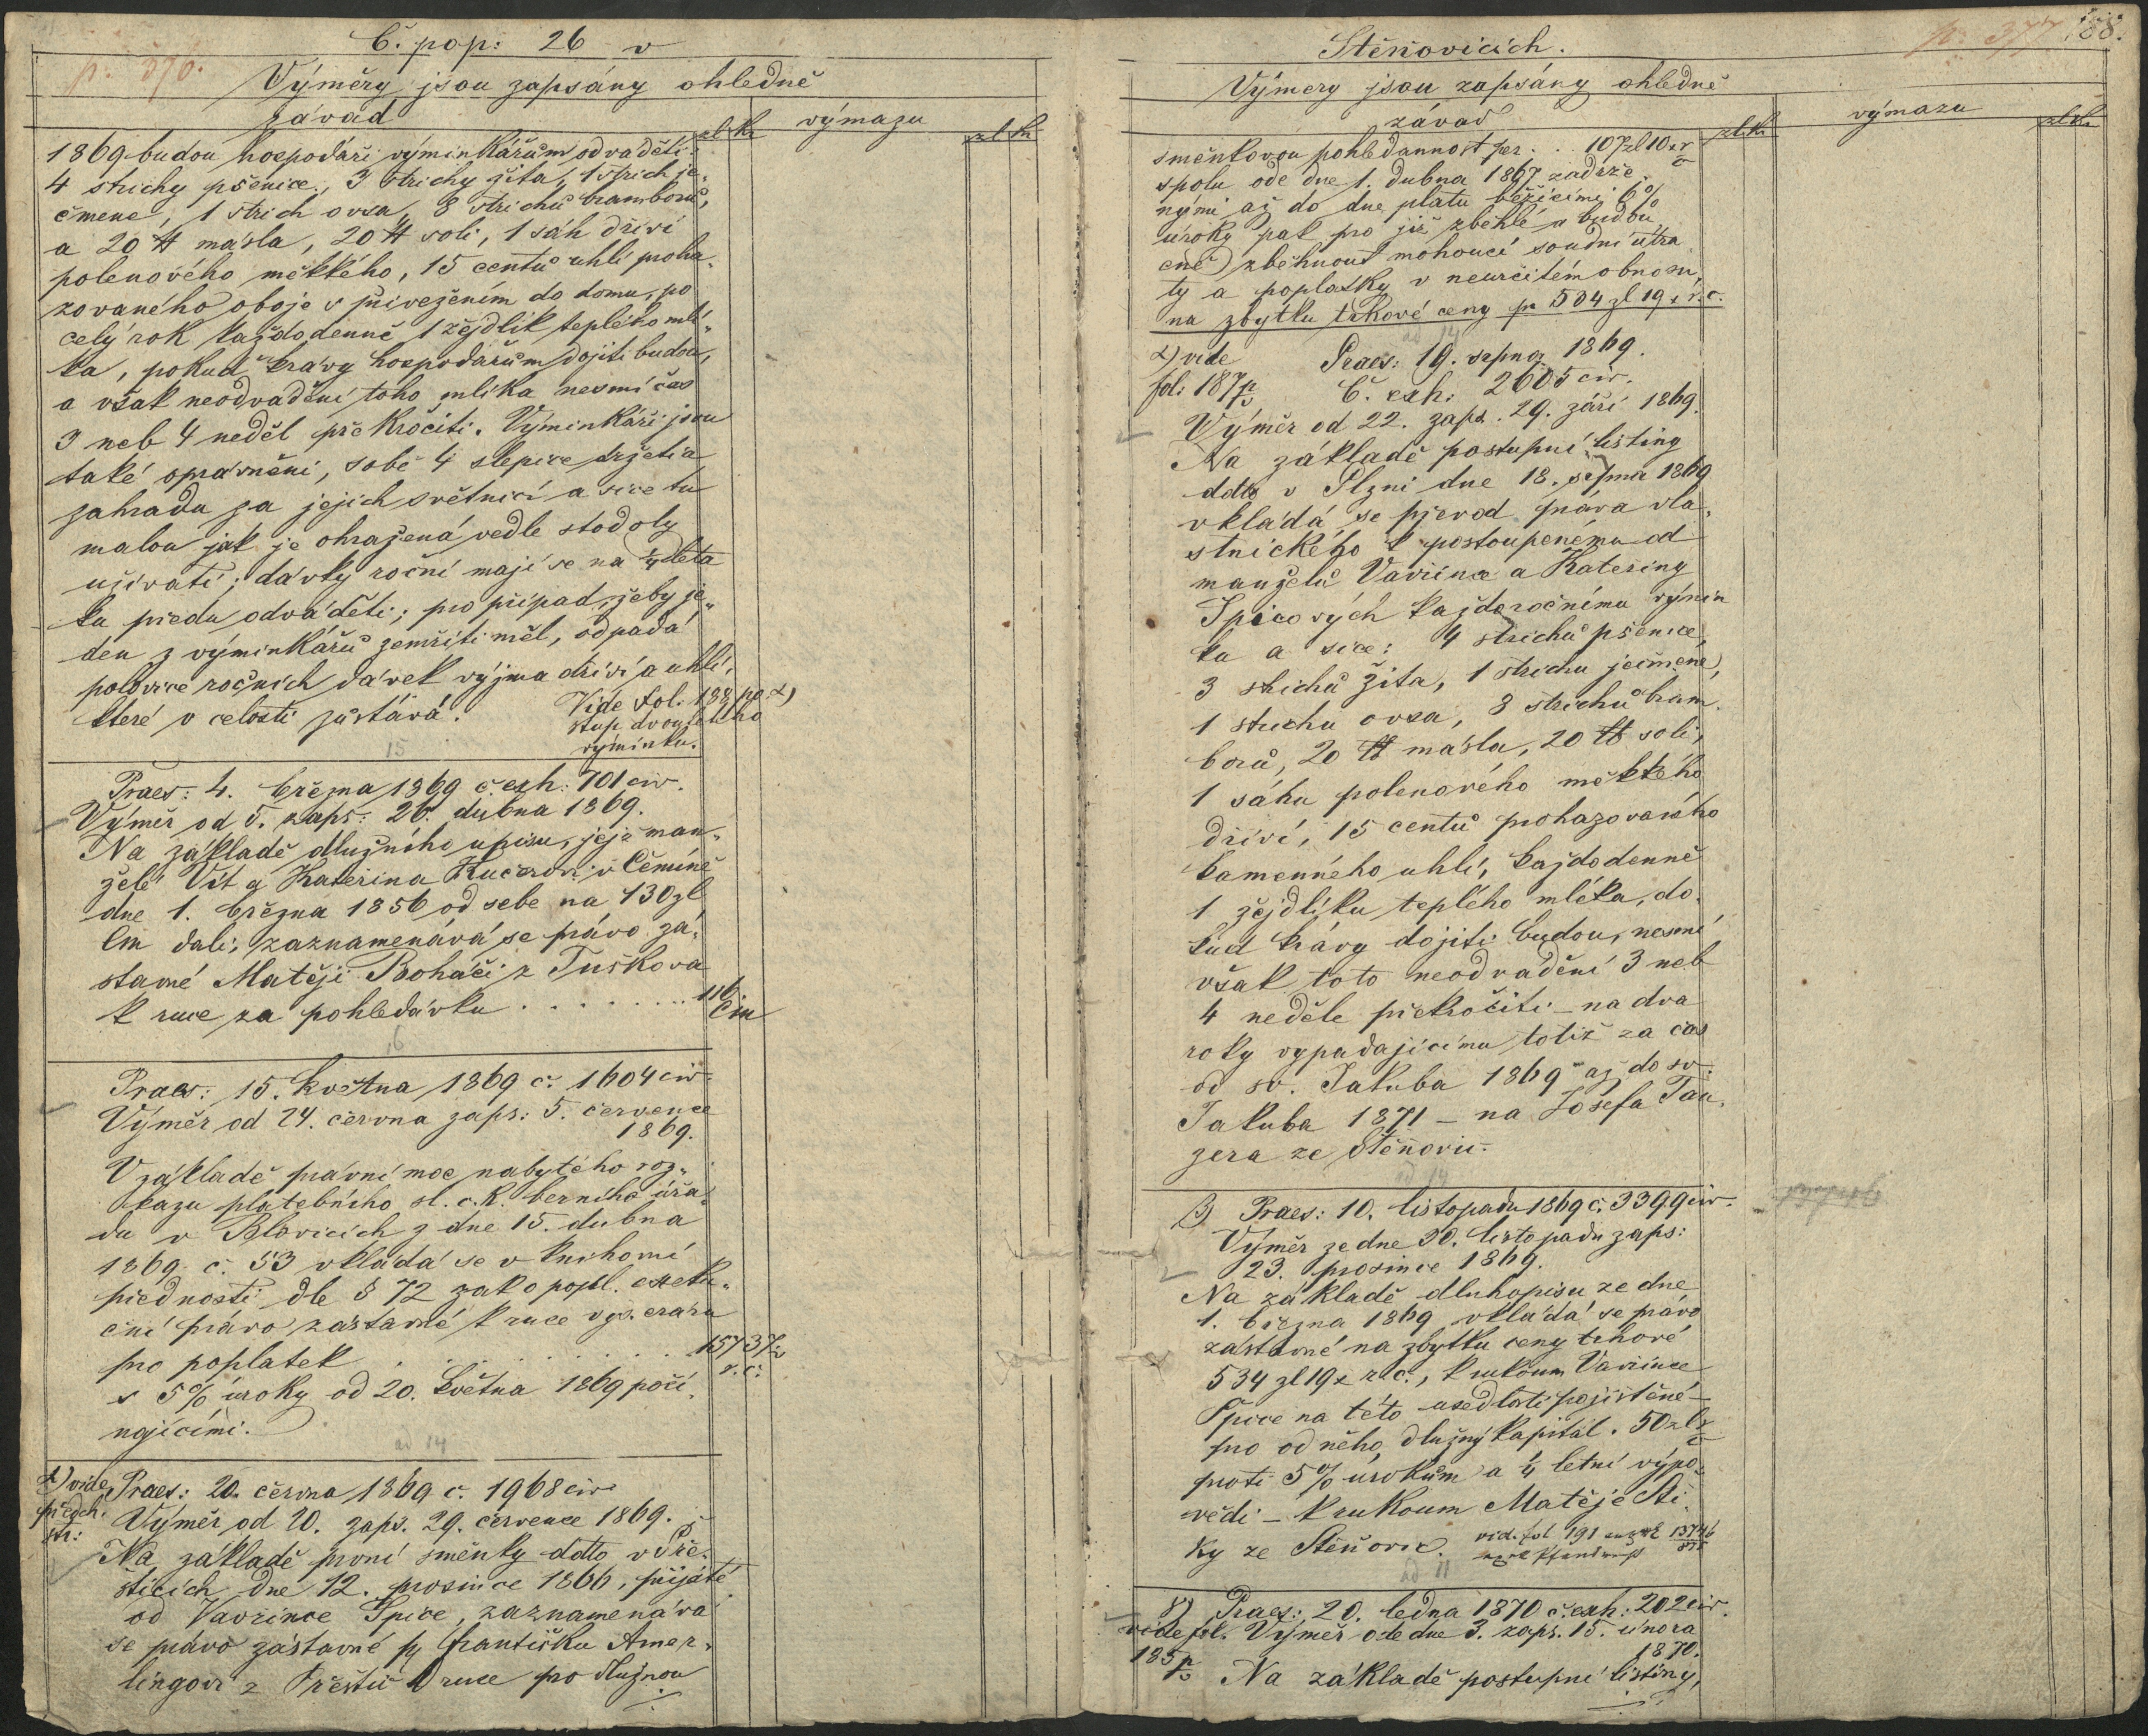 Č. pop: 26 v
p. 376.
Výměry jsou zapsány ohledně
závad
zl. kr.
výmazu
zl. kr.
1869 budou hospodáři výminkářům odváděti:
4 strichy pšenice, 3 strichy žita, 1 strich je„
čmene, 1 strich ovsa, 8 strichů bramborů,
a 20 ℔ másla, 20 ℔ soli, 1 sáh dříví
polenového měkkého, 15 centů uhlí proha„
zovaného oboje s přivezením do domu, po
celý rok každodenně 1 žejdlík teplého mlí„
ka, pokud krávy hospodářům dojiti budou,
a však neodvádění toho mlíka nesmí čas
3 neb 4 neděl překročiti. Výminkáři jsou
také oprávněni, sobě 4 slepice držeti a
zahradu za jejich světnicí a sice tu
malou jak je ohražená vedle stodoly
užívati; dávky roční mají se na ¼ léta
ku předu odváděti; pro případ, žeby je„
den z výminkářů zemříti měl, odpadá
polovice ročních dávek vyjma dříví a uhlí,
které v celosti zůstává.
Vide fol. 188 po α)
stup dvouletího
výminku.
15
Praes: 4. března 1869 č. exh: 701 civ.
Výměr od 5. zaps: 26. dubna 1869.
Na základě dlužního upisu, jejž man„
želé Vít a Kateřina Kučerovi v Čemíně
dne 1. března 1856 od sebe na 130 zl
Cm dali, zaznamenává se právo zá„
stavné Matěji Boháči z Tuškova
k ruce za pohledávku . . . . . . . . 116.
Cm
16
Praes: 15. května 1869 č. 1604 civ.
Výměr od 24. června zaps: 5. července
1869.
V základě právní moc nabytého roz„
kazu platebního sl. c. k. berního úřa„
du v Blovicích z dne 15. dubna
1869 č. 53 vkládá se v knihovní
přednosti dle § 72 zak o popl. exeku„
ční právo zástavné k ruce vys. eraru
pro poplatek . . . . . . . . 157 37½
r. č.
s 5% úroky od 20. května 1869 počí„
najícími.
ad 14
α) vide
předch.
str:
Praes: 20. června 1869 č. 1968 civ
Výměr od 20. zaps. 29. července 1869.
Na základě první směnky ddto v Pře„
šticích dne 12. prosince 1866, přijaté
od Vavřince Špice, zaznamenává
se právo zástavné p. Františku Amer„
lingovi z Přeštic k ruce pro dlužnou
Štěňovicích.
p. 377
188.
Výmery jsou zapsány ohledně
závad
zl. kr.
výmazu
zl. kr.
směnkovou pohledannost per . . 107 zl 10 x r č
spolu ode dne 1. dubna 1867 zadrže„
nými až do dne platu běžícími 6%
úroky pak pro již zběhlé a budou„
cně zběhnout mohoucí soudní útra„
ty a poplatky v neurčitém obnosu,
na zbytku trhové ceny pr 504 zl 19 x r. č.
ad 14
α) vide
fol: 187 p/v
Praes: 19. srpna 1869.
Č. exh: 2605 civ.
Výměr od 22. zaps. 29. září 1869.
Na základě postupní listiny
ddto v Plzni dne 18. srpna 1869
vkládá se převod práva vla„
stnického k postoupenému od
manželů Vavřince a Kateřiny
Špicových každoročnímu výmin
ku a sice: 4 strichů pšenice,
3 strichů žita, 1 strichu ječmene,
1 strichu ovsa, 8 strichů bram„
borů, 20 ℔ másla, 20 ℔ soli,
1 sáhu polenového měkkého
dříví, 15 centů prohazovaného
kamenného uhlí, každodenně
1 žejdlíku teplého mléka, do„
kud krávy dojiti budou, nesmí
však toto neodvádění 3 neb
4 neděle překročiti – na dva
roky vypadajícímu totiž za čas
od sv. Jakuba 1869 až do sv.
Jakuba 1871 – na Josefa Tau„
zera ze Štěňovic.
ad 14
β) Praes: 10. listopadu 1869 č. 3399 civ.
Výměr ze dne 20. listopadu zaps:
23. prosince 1869.
Na základě dluhopisu ze dne
1. března 1869 vkládá se právo
zástavné na zbytku ceny trhové
534 zl 19 x r. č., k rukoum Vavřince
Špice na této usedlosti pojištěné –
pro od něho dlužný kapitál . 50 zl r č
proti 5% úrokům a ¼ letní výpo„
vědi – k rukoum Matěje Sti„
ky ze Štěňovic.
vid. fol 191
ad 11
γ)
vide fol.
185 p/v
Praes: 20. ledna 1870 č. exh: 202 civ.
Výměr ode dne 3. zaps. 15. února
1870.
Na základě postupní listiny,